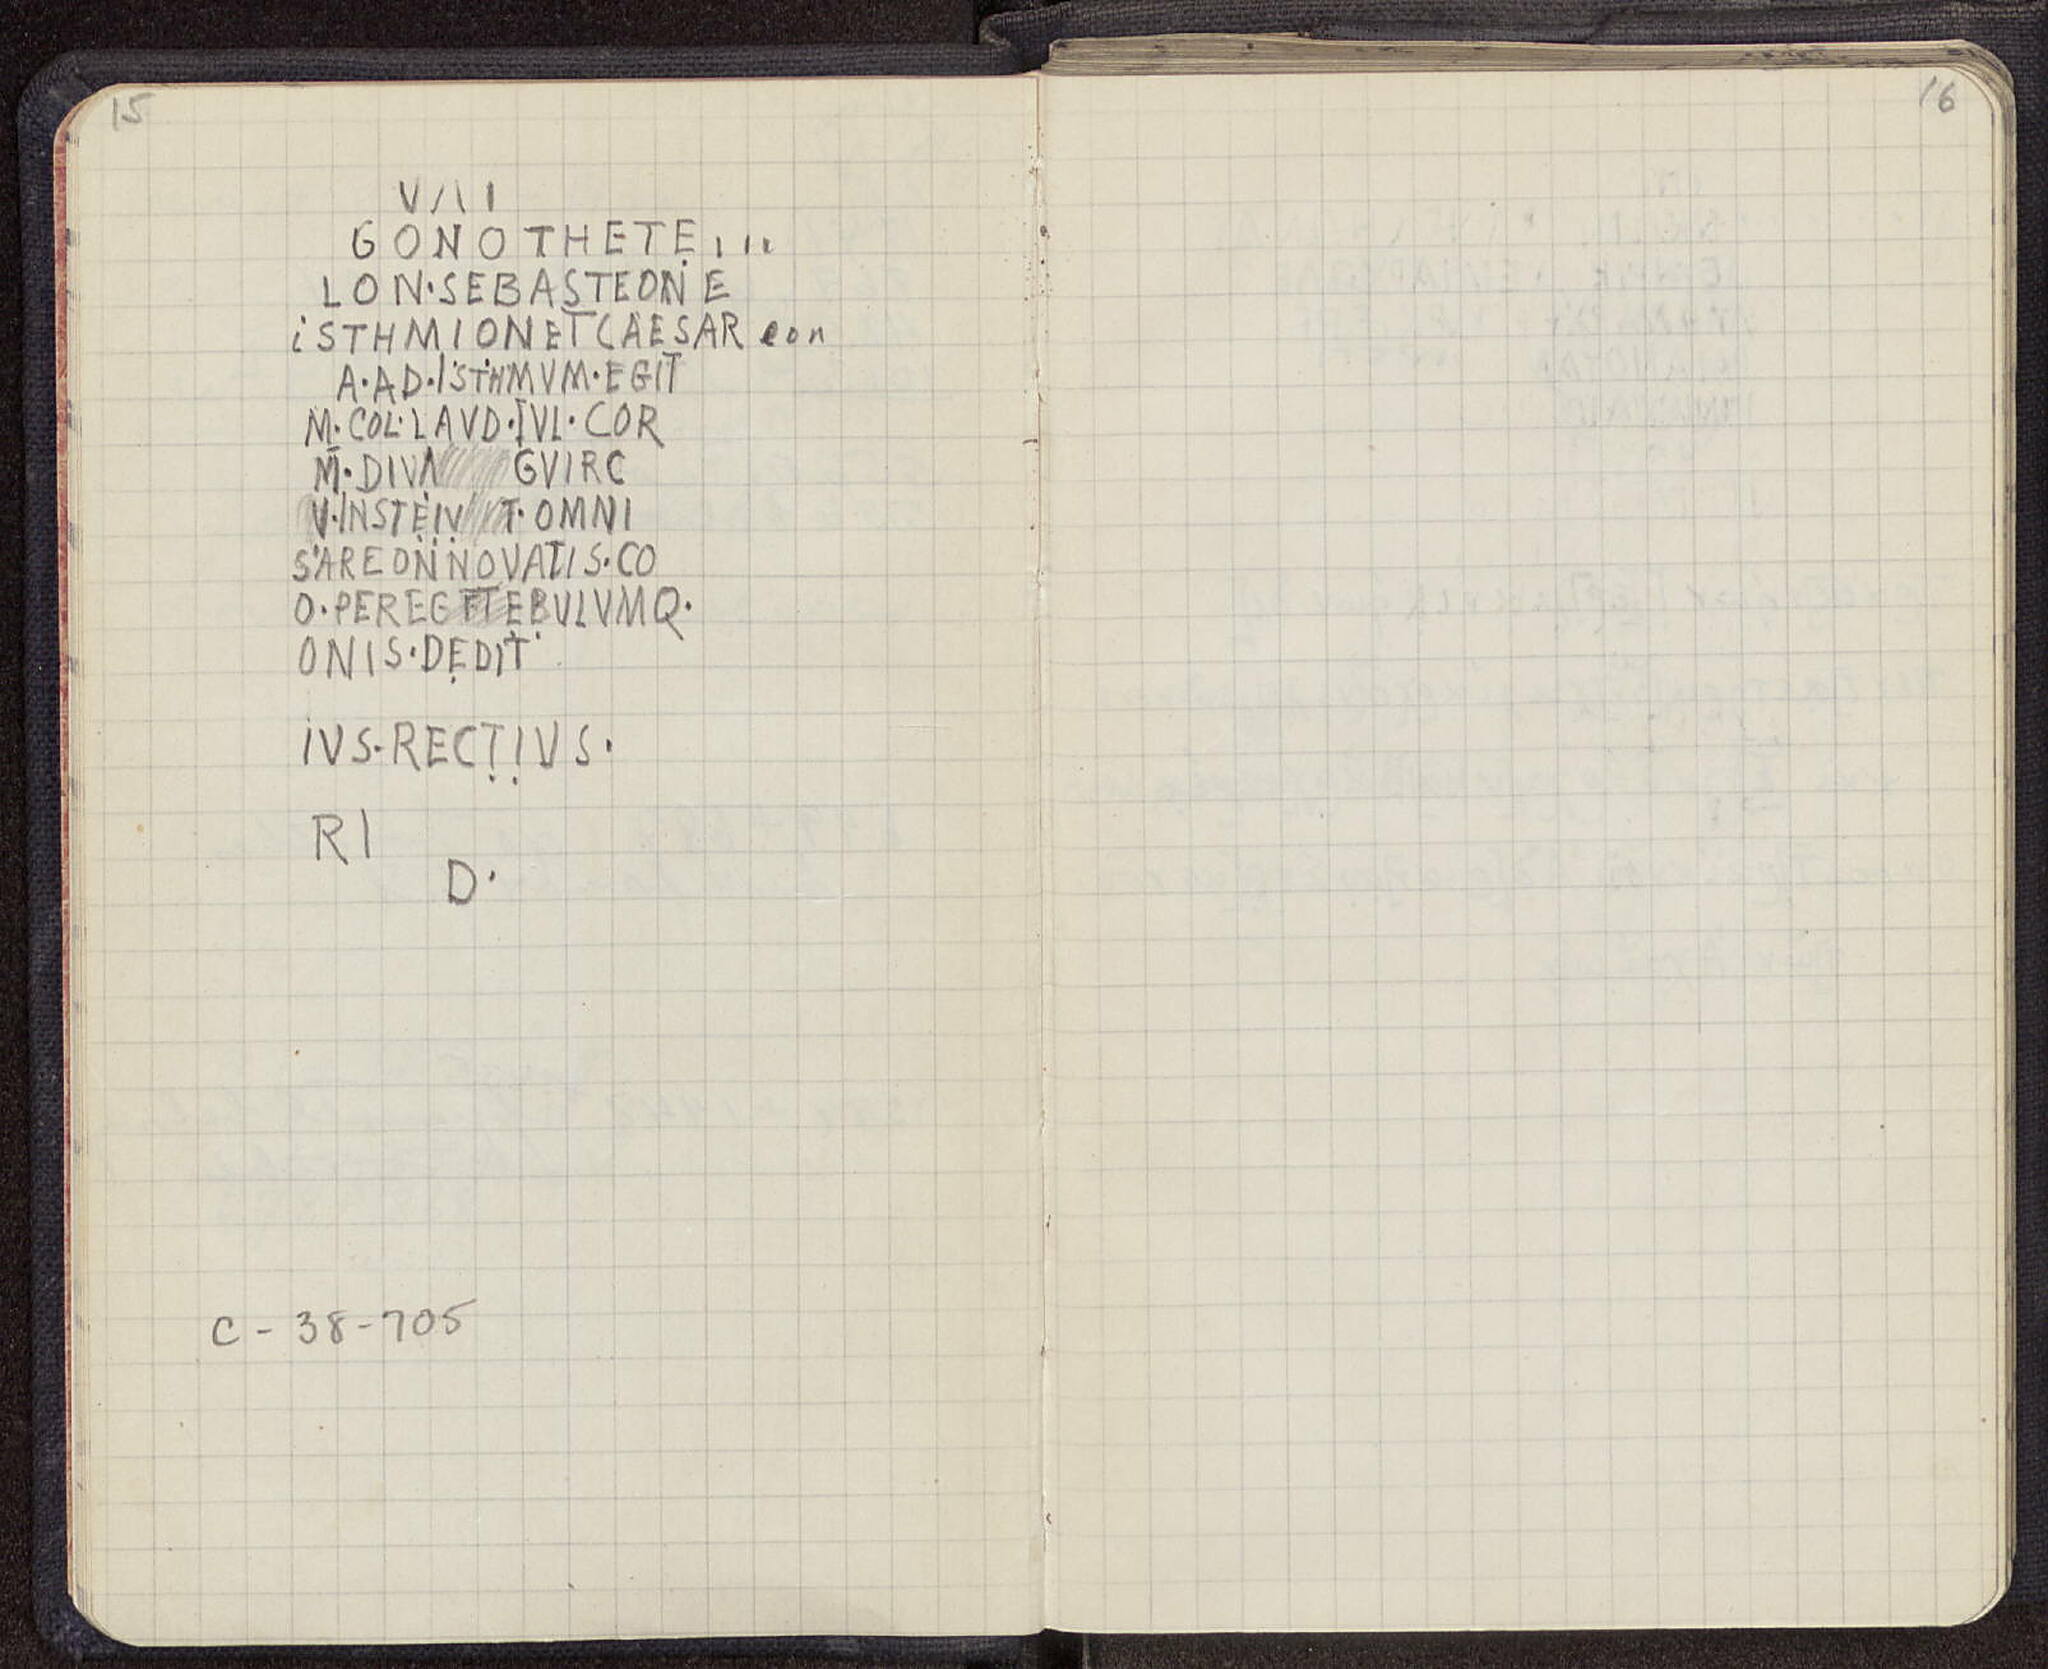 15
V/\I
GONOTHETE...
LON·SEBASTEON E
iSTHMIONETCAESAReon
A·AD·ISTHMVM·EGIT
M·COL·LAVD·IVL·COR
M·DIVA GVIRC
V·INSTEIV T·OMNI
SAREONNOVATIS·CO
O·PEREGITEBVLVMQ·
ONIS·DEDIT
IVS·RECTIVS·
RI
D·
C-38-705
16